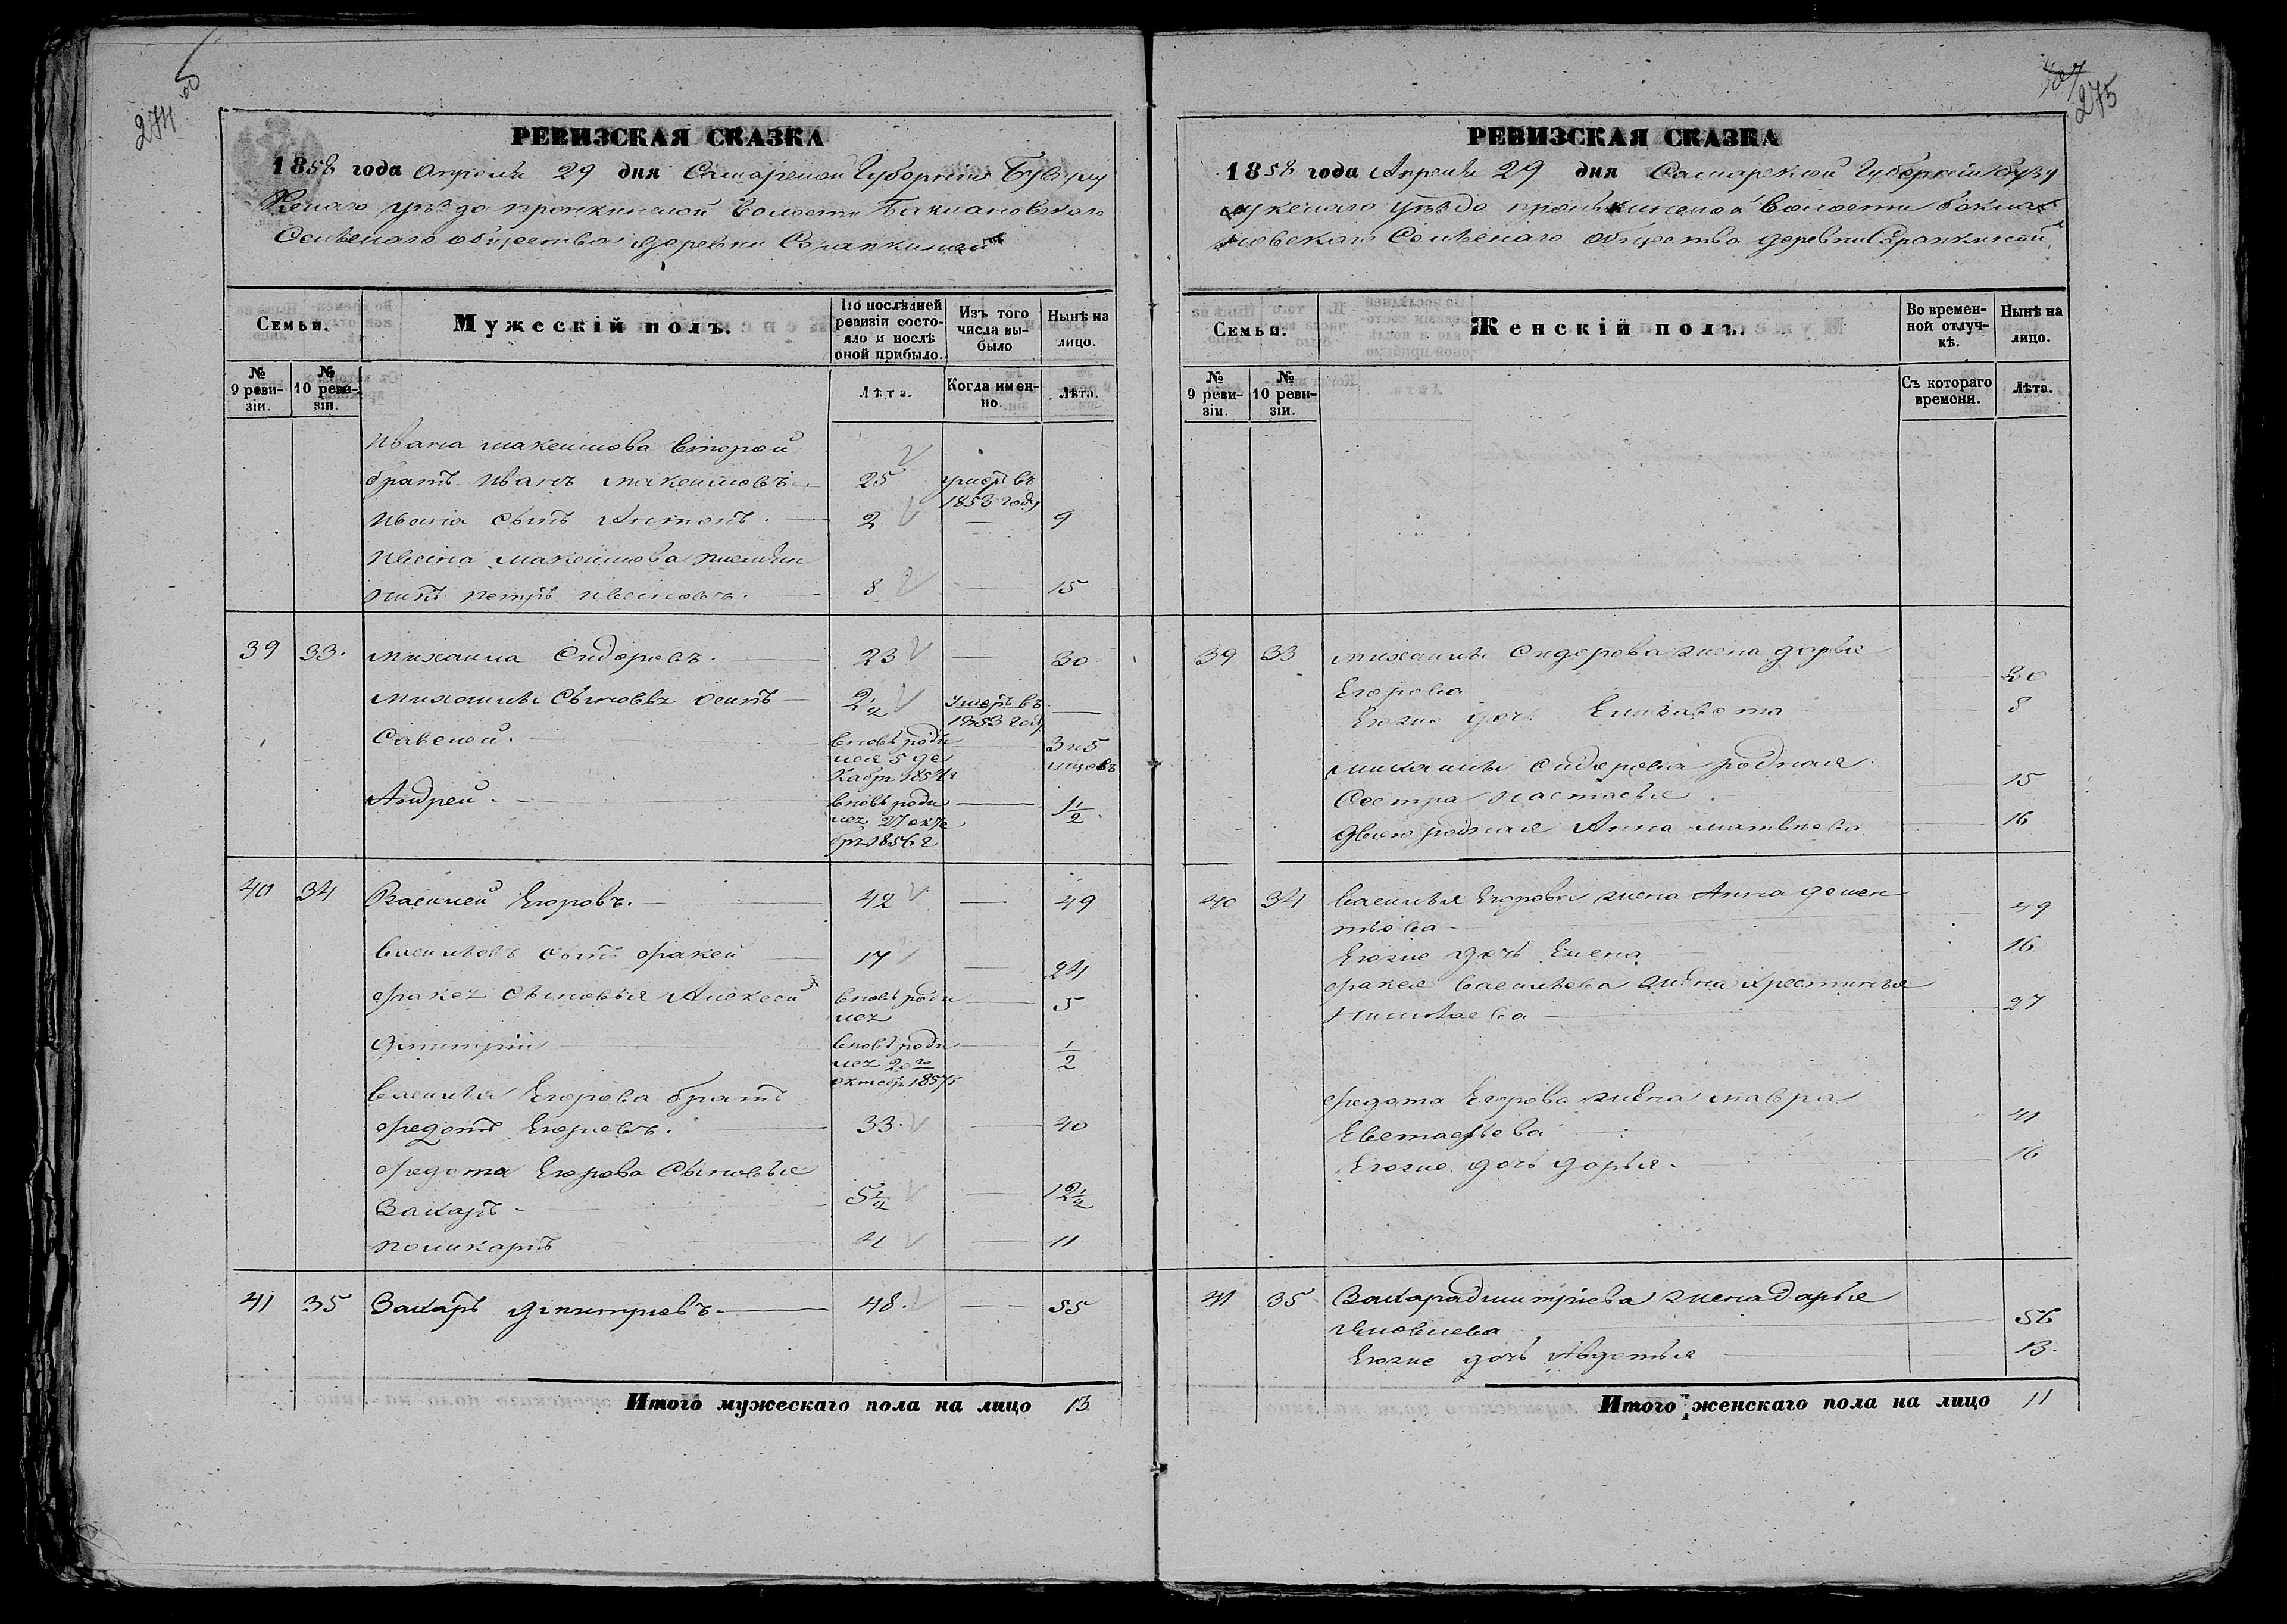 274
РЕВИЗСКАЯ СКАЗКА
1858 года Апреля 29 дня Самарской Губернии Бузулу
кскаго уѣзда пронкинской волости Баклановскаго
Сельскаго общества деревни Сорапкиной
Семьи.
Мужескій полъ.
По послѣдней ревизіи состояло и послѣ оной прибыло.
Изъ того числа выбыло
Нынѣ на лицо.
№ 9 ревизіи.
№ 10 ревизіи.
Лѣта.
Когда именно.
Лѣта.
Ивана максимова второй
братъ Иванъ максимовъ 25 умеръ въ 1853 году
Ивана сынъ Антонъ. 2 — 9
Ивана максимова племян
никъ петръ Ивановъ. 8 — 15
39 33. михаила Сидоровъ. 23 — 30
михаилы сыновья осипъ 2½ умеръ въ 1853 году —
Савелей. вновь роди лся 5 де кабр 1854 г 3 и 5 мицовъ
Андрей. вновь роди лсz 27 октя бря 1856 г — 1½
40 34 Василей Егоровъ. 42 — 49
Васильевъ сынъ фракей 17 — 24
фракеz сыновья Алексей вновь роди лсz — 5
дмитрій вновь роди лсz 20го октябр 1857 г — ½
Василья Егорова братъ
федотъ Егоровъ. 33. — 40
федота Егорова сыновья
Захаръ 5½ — 12½
поликарпъ 4 — 11
41 35 Захаръ дмитриевъ. 48. — 55
Итого мужескаго пола на лицо 13
275
РЕВИЗСКАЯ СКАЗКА
1858 года Апреля 29 дня Самарской Губернии Бузу
лукскаго уѣзда пронькинской волости бакла
новскаго Сельскаго общества деревни Сорапкиной
Семьи.
Женскій полъ.
Во временной отлучкѣ.
Нынѣ на лицо.
№ 9 ревизіи.
№ 10 ревизіи.
Съ котораго времени.
Лѣта.
39 33 михаилы Сидорова жена дарья
Егорова 20
Егожа дочь Елизавета 8
михаилы сидорова родная
Сестра настасья. 15
двоюродная Анна матвѣева 16
40 34 Василья Егорова жена Анна демен
тьева 49
Егоже дочь Елена 16
фракея васильева жена хрестинья
Николаева 27
федота Егорова жена мавра
Евстафьева 41
Егоже дочь дарья. 16
41 35 Захара дмитриева жена дарья
Яковлева 56
Егоже дочь Авдотья 13.
Итого женскаго пола на лицо 11